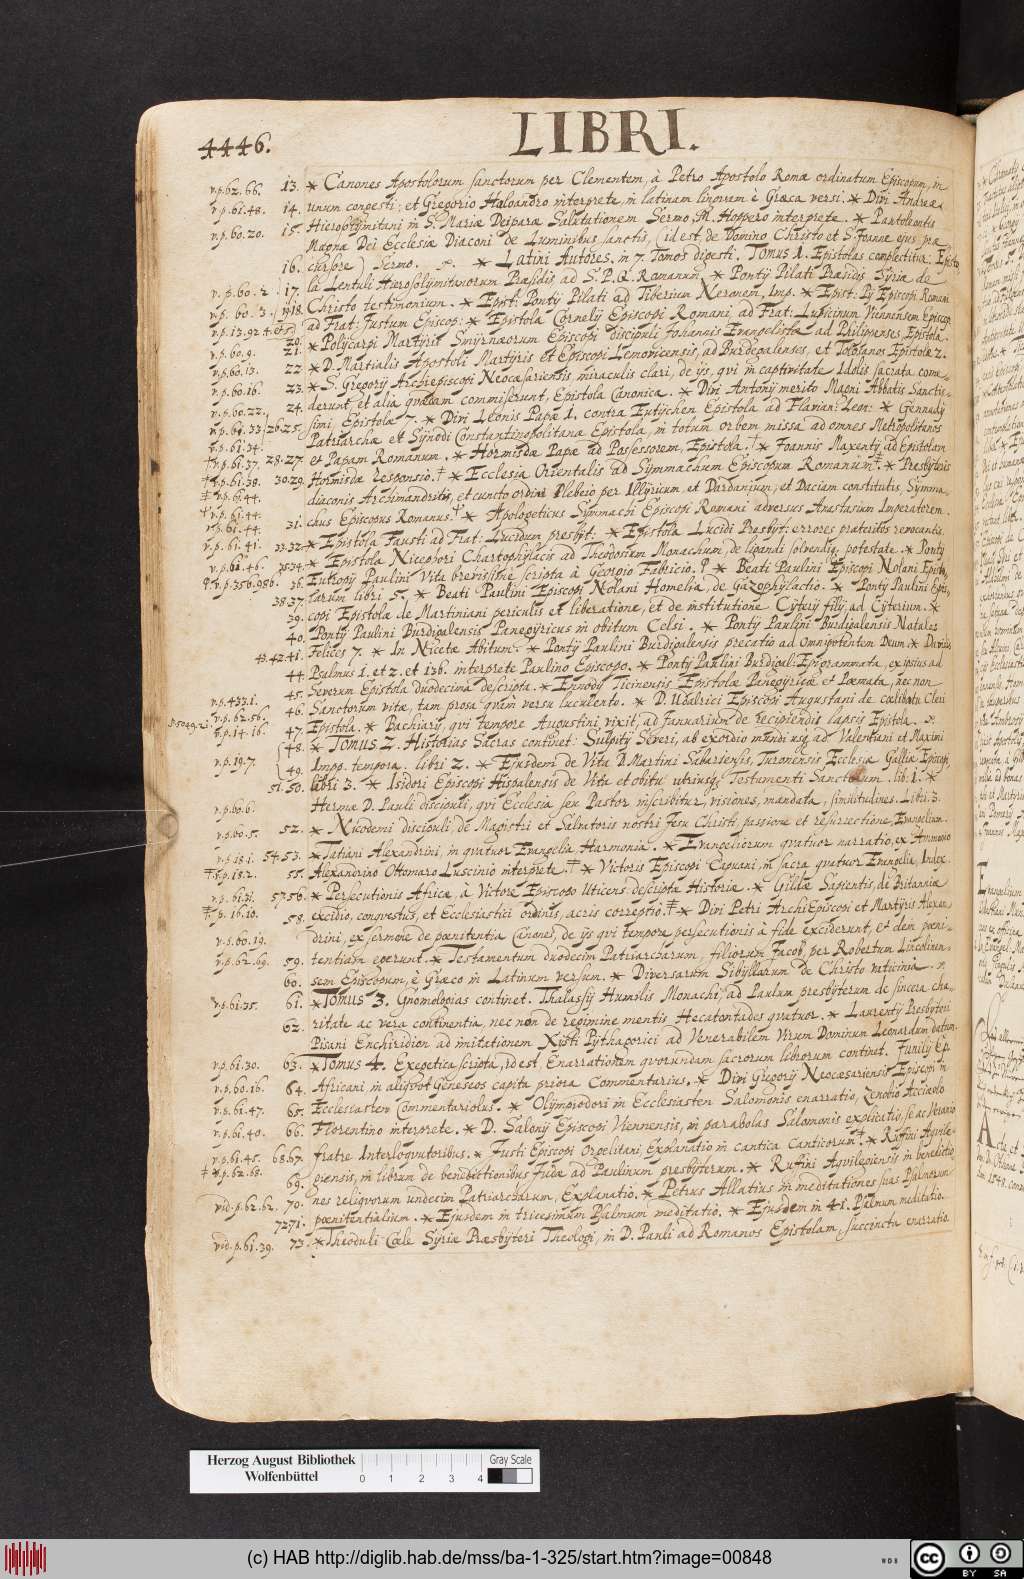 4446.
LIBRI.
v.p.62.66. 13. * Canones Apostolorum sanctorum per Clementem, à Petro Apostolo Romæ ordinatum Episcopum, in
v.p.61.48. 14. unum congesti: et Gregorio Haloandro interprete, in latinam linguam è Græca versi. * Divi Andreæ
v.p.60.20. 15. Hierosolymitani in S. Mariæ Deiparæ Salutationem Sermo, M. Hoppero interprete. * Pantoleontis
Magnæ Dei Ecclesiæ Diaconi de Luminibus sanctis, (id est, de Domino Christo et S. Joanne ejus præ
16. cursore) Sermo. * Latini Autores, in 7. Tomos digesti. Tomus 1. Epistolas complectitur. Episto
v.p.60.2 17. la Lentuli Hierosolymitanorum Præsidis, ad S.P.Q. Romanum. * Pontij Pilati Præsidis Syriæ de
v.p.60.3. 18. Christo testimonium. * Epist: Pontij Pilati ad Tiberium Neronem, Imp. * Epist. Pij Episcopi Romani
v.p.13.92 ad Frat: Justum Episcop: * Epistola Cornelij Episcopi Romani, ad Frat: Lupicinum Viennensem Episcop.
v.p.60.9. 20. 21. * Polycarpi Martyris Smyrnæorum Episcopi discipuli Johannis Evangelistæ ad Philippenses Epistola.
v.p.60.13. 22 * D. Martialis Apostoli Martyris et Episcopi Lemovicensis, ad Burdegalenses, et Tolosanos Epistolæ 2.
v.p.60.16. 23. * S. Gregorij Archiepiscopi Neocæsariensis miraculis clari, de ijs, qvi in captivitate Idolis sacrata come-
v.p.60.22. 24. derunt, et alia qvædam commiserunt, Epistola Canonica. * Divi Antonij merito Magni Abbatis Sanctis-
v.p.61.33. 26.25. simi, Epistolæ 7. * Divi Leonis Papæ 1. contra Eutychen Epistola ad Flavian: Leon: * Gennadij
v.p.61.34. Patriarchæ et Synodi Constantinopolitanæ Epistola, in totum orbem missa ad omnes Metropolitanos
v.p.61.37. 28.27. et Papam Romanum. * Hormisdæ Papæ ad Possessorem, Epistola. * Joannis Maxentij ad Epistolam
v.p.61.38. 30.29. Hormisdæ Responsio. * Ecclesiæ Orientalis ad Symmachum Episcopum Romanum. * Presbyteris
v.p.61.44. diaconis Archimandritis, et cuncto ordini Plebeio per Illyricum, et Dardanium, et Daciam constitutis, Symma-
v.p.61.44. chus Episcopus Romanus. * Apologeticus Symmachi Episcopi Romani adversus Anastasium Imperatorem.
v.p.61.44. 31. * Epistola Fausti ad Frat: Lucidum presbyt: * Epistola Lucidi Presbyt: errores præteritos revocantis.
v.p.61.41. 33.32. * Epistola Nicephori Chartophylacis ad Theodosium Monachum, de ligandi solvendiq potestate. * Pontij
v.p.62.46. 35.34. Eutropij Paulini Vita brevissime scripta à Georgio Fabricio. * Beati Paulini Episcopi Nolani Episto-
v.p.356.956. 36. larum libri 5. * Beati Paulini Episcopi Nolani Homelia, de Gazophylactio. * Pontij Paulini Epis-
38.37. copi Epistola de Martiniani periculis et liberatione, et de institutione Cyterij filij, ad Cyterium. *
39. Pontij Paulini Burdigalensis Panegyricus in obitum Celsi. * Pontij Paulini Burdigalensis Natales
40. Felices 7. * In Nicetæ Abitum. * Pontij Paulini Burdigalensis precatio ad Omnipotentem Deum. * Davidis
43.42.41. Psalmus 1. et 2. et 136. interprete Paulino Episcopo. * Pontij Paulini Burdigal: Epigrammata, ex ipsius ad
44. Severum Epistola duodecima descripta. * Ennodij Ticinensis Epistolæ Panegyricæ et Poemata, nec non
45. Sanctorum vitæ, tam prosa quàm versu luculento. * D. Udalrici Episcopi Augustani de cælibatu Cleri
v.p.433.1. 46. Epistola. * Bachiarij, qvi tempore Augustini vixit, ad Januarium de recipiendis lapsis Epistola.
v.p.62.56. 47. * Tomus 2. Historias Sacras continet: Sulpitij Severi, ab exordio mundi usq ad Valentiani et Maximi
v.p.14.16. 48. Impp. tempora. libri 2. * Ejusdem de Vita D. Martini Sabariensis, Turonensis Ecclesiæ Galliæ Episcopi,
v.p.19.7. 49. libri 3. * Isidori Episcopi Hispalensis de Vita et obitu utriusq Testamenti Sanctorum. lib: 1. *
51.50. Hermæ D. Pauli discipuli, qvi Ecclesiæ seu Pastor inscribitur, visiones, mandata, similitudines. Libri 3.
v.p.60.6. * Nicodemi discipuli, de Magistri et Salvatoris nostri Jesu Christi, passione et resurrectione, Evangelium.
v.p.60.5. 52. * Tatiani Alexandrini, in qvatuor Evangelia Harmonia. * Evangeliorum qvatuor narratio, ex Ammonio
v.p.18.1. 54.53. Alexandrino Ottomaro Luscinio interprete. * Victoris Episcopi Capuani, in sacra qvatuor Evangelia, Index.
v.p.18.2. 55. * Persecutionis Africæ, à Victore Episcopo Uticens: descripta Historiæ. * Gildæ Sapientis, de Britanniæ
v.p.61.31. 57.56. excidio, conqvestus, et Ecclesiastici ordinis, acris correptio. * Divi Petri ArchiEpiscopi et Martyris Alexan-
v.p.16.10. 58. drini, ex sermone de poenitentia Canones, de ijs qvi tempora persecutionis à fide exciderunt, et dein poeni-
v.p.60.19. tentiam egerunt. * Testamentum duodecim Patriarcharum, filiorum Jacob, per Robertum Lincolnien-
v.p.62.69. 59. sem Episcopum, è Græco in Latinum versum. * Diversarum Sibyllarum de Christo vaticinia.
60. * Tomus 3. Gnomologias continet. Thalassij Humilis Monachi, ad Paulum presbyterum de sincera cha-
v.p.61.35. 61. ritate ac vera continentia, nec non de regimine mentis Hecatontades qvatuor. * Laurentij Presbyteri
62. Pisani Enchiridion ad imitationem Xysti Pythagorici ad Venerabilem Virum Dominum Leonardum datum.
v.p.61.30. 63. * Tomus 4. Exegetica scripta, id est, Enarrationem qvorundam sacrorum librorum continet. Junilij Ep.
v.p.60.16. 64. Africani, in aliqvot Geneseos capita priora Commentarius. * Divi Gregorij Neocæsariensis Episcopi in
v.p.61.47. 65. Ecclesiasten Commentariolus. * Olympiodori in Ecclesiasten Salomonis enarratio, Zenobio Acciaolo
v.p.61.40. 66. Florentino interprete. * D. Salonij Episcopi Viennensis, in parabolas Salomonis explicatio, se ac Verano
v.p.61.45. 68.67. fratre Interloqvutoribus. * Justi Episcopi Orgelitani, Explanatio in cantica Canticorum. * Ruffini Aqvile-
v.p.62.68. 69. giensis, in librum de benedictionibus Judæ ad Paulinum presbyterum. * Ruffini Aqvilegiensis in benedictio
vid.p.62.62. 70. nes religvorum undecim Patriarcharum, Explanatio. * Petrus Allatius in meditationes suas Psalmorum
72.71. poenitentialium. * Ejusdem in tricesimum Psalmum meditatio. * Ejusdem in 41. Psalmum meditatio.
vid.p.61.39. 73. * Theoduli Cæle Syriæ Præsbyteri Theologi, in D. Pauli ad Romanos Epistolam, succincta enarratio.
Herzog August Bibliothek
Wolfenbüttel
0 1 2 3 4
Gray Scale
(c) HAB http://diglib.hab.de/mss/ba-1-325/start.htm?image=00848
WDB
CC BY SA